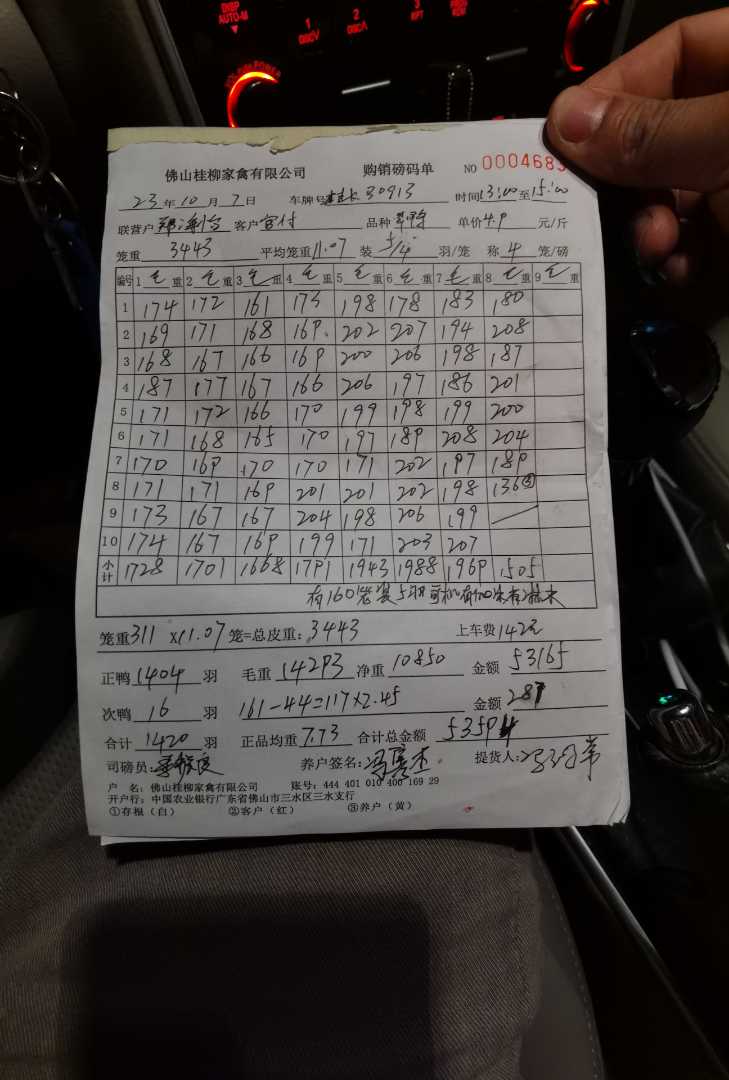 1 2 3
佛山桂柳家禽有限公司 购销磅码单 NO 000468
23年10月7日 车牌号 30913 时间13:00至15:00
联营户 客户 品种 单价4.9元/斤
笼重3443 平均笼重11.07 装5/4羽/笼 称4笼/磅
编号 1毛重 2毛重 3毛重 4毛重 5毛重 6毛重 7毛重 8毛重 9毛重
1 174 172 161 173 198 178 183 180
2 169 171 168 169 202 207 194 208
3 168 167 166 169 200 206 198 187
4 187 177 167 166 206 197 186 201
5 171 172 166 170 199 198 199 200
6 171 168 165 170 197 189 208 204
7 170 169 170 170 171 202 197 189
8 171 171 169 201 201 202 198 136③
9 173 167 167 204 198 206 199
10 174 167 169 199 171 203 207
小计 1728 1701 1668 1791 1943 1988 1969 1505
有160笼装5只
笼重311×11.07笼=总皮重:3443 上车费142元
正鸭1404羽 毛重14293 净重10850 金额53165
次鸭16羽 161-44=117×2.45 金额287
合计1420羽 正品均重7.73 合计总金额5359
司磅员: 养户签名: 提货人:
户 名:佛山桂柳家禽有限公司 账号:444 401 010 400 169 29
开户行:中国农业银行广东省佛山市三水区三水支行
①存根(白) ②客户(红) ③养户(黄)